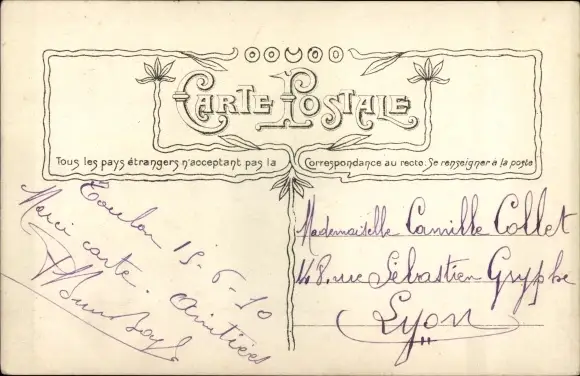 CARTE POSTALE
Tous les pays étrangers n'acceptant pas la Correspondance au recto. Se renseigner à la poste
Toulon 15-6-10
Merci carte. Amitiées
Mademoiselle Camille Collet
48, rue Sébastien Gryphe
Lyon